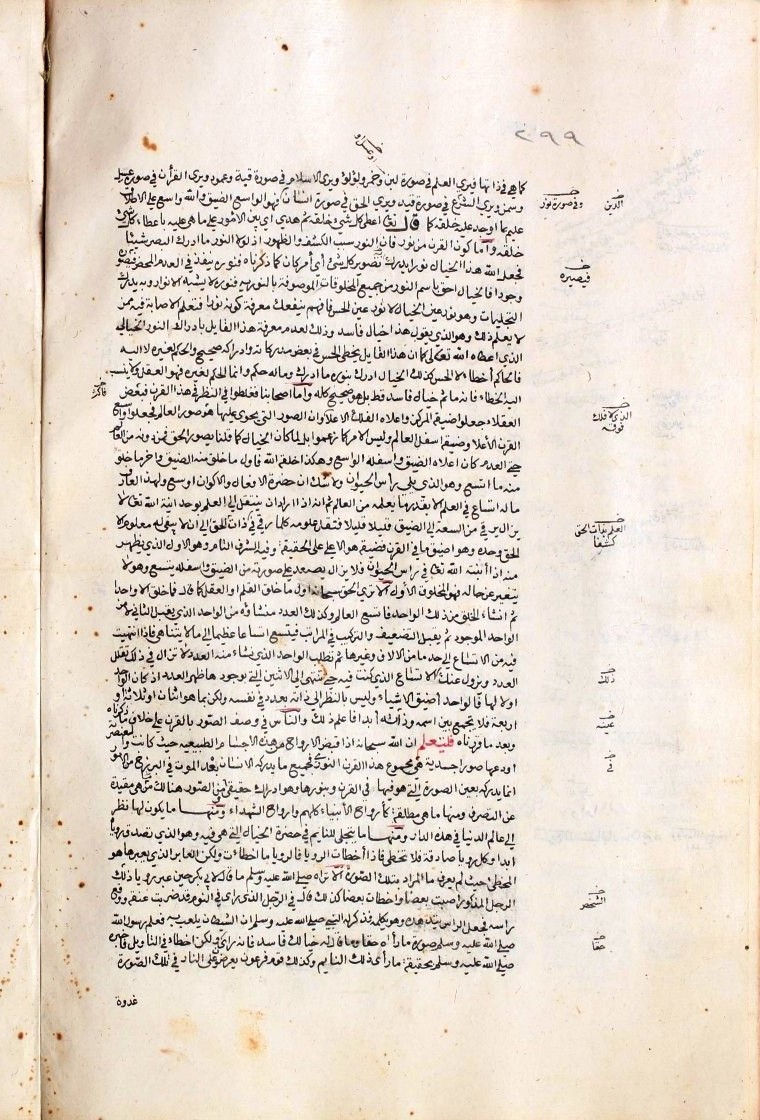 ٢٩٩
كما هي في ذاتها فيرى العلم في صورة لبن وخمر ولؤلؤ ويرى الاسلام في صورة قبة وعمود ويرى القرآن في صورة عسل
وسمن ويرى الشرع في صورة قيد ويرى الحق في صورة انسان فهو الواسع الضيق والله واسع على الاطلاق
عليم بما اوجد عليه خلقه كما قال تعالى اعطى كل شيء خلقه ثم هدى اي بين الامور على ما هي عليه باعطاء كل شيء
خلقه واما كون القرن من نور فان النور سبب الكشف والظهور اذ لولا النور ما ادرك البصر شيئا
فجعل الله هذا الخيال نورا يدرك به تصوير كل شيء أي أمر كان كما ذكرناه فنوره ينفذ في العدم المحض فيصوره
وجودا فالخيال احق باسم النور من جميع المخلوقات الموصوفة بالنورية فنوره لا يشبه الانوار وبه يدرك
التجليات وهو نور عين الخيال لا نور عين الحس فافهم فانه ينفعك معرفة كونه نورا فتعلم الاصابة فيه ممن
لا يعلم ذلك وهو الذي يقول هذا خيال فاسد وذلك لعدم معرفة هذا القايل بادراك النور الخيالي
الذي اعطاه الله تعالى كما ان هذا القايل يخطي الحس في بعض مدركاته وادراكه صحيح والحكم لغيره لا اليه
فالحاكم أخطأ لا الحس كذلك الخيال ادرك بنوره ما ادرك وماله حكم وانما الحكم لغيره فهو العقل ولا ينسب
اليه الخطاء فانه ما ثم خيال فاسد قط بل هو صحيح كله واما اصحابنا فغلطوا في النظر في هذا القرن فبعض
العقلاء جعلوا ضيقه المركز واعلاه الفلك الاعلا وان الصور التي يحوي عليها هو صور العالم فجعلوا واسع
القرن الاعلا وضيقه اسفل العالم وليس الامر كما زعموا بل لما كان الخيال كما قلنا يصور الحق فمن دونه من العالم
حتى العدم كان اعلاه الضيق واسفله الواسع وهكذا خلقه الله فاول ما خلق منه الضيق واخر ما خلق
منه ما اتسع وهو الذي يلي راس الحيوان ولا شك ان حضرة الافعال والاكوان اوسع ولهذا العارف
ما له اتساع في العلم الا بقدر ما يعلمه من العالم ثم انه اذا اراد ان ينتقل الى العلم بوحدانية الله تعالى لا
يزال يرقى من السعة الى الضيق قليلا قليلا فتقل علومه كلما رقي في ذات الحق الى ان لا يبقى له معلوم الا
الحق وحده وهو اضيق ما في القرن فضيقه هو الاعلى على الحقيقة وفيه الشرف التام وهو الاول الذي يظهر
منه اذا أنبته الله تعالى في راس الحيوان فلا يزال يصعد على صورته من الضيق واسفله يتسع وهو لا
يتغير عن حاله فهو المخلوق الأول الا ترى الحق سبحانه اول ما خلق القلم او العقل كما قال فما خلق الا واحدا
ثم انشاء الخلق من ذلك الواحد فاتسع العالم وكذلك العدد منشاؤه من الواحد الذي يقبل الثاني لا من
الواحد الموجود ثم يقبل التضعيف والتركيب في المراتب فيتسع اتساعا عظيما الى ما لا يتناهى فاذا انتهيت
فيه من الاتساع الى حد ما من الالاف وغيرها ثم تطلب الواحد الذي نشاء منه العدد لا تزال في ذلك تقلل
العدد ويزول عنك الاتساع الذي كنت فيه حتى تنتهي الى الاثنين التي بوجودها ظهر العدد اذ كان الواحد
اولا لها فالواحد أضيق الاشياء وليس بالنظر الى ذاته بعدد في نفسه ولكن بما هو اثنان او ثلاثة او
اربعة فلا يجمع بين اسمه وذاته أبدا فاعلم ذلك والناس في وصف الصور بالقرن على خلاف ما ذكرناه
وبعد ما قررناه فلتعلم ان الله سبحانه اذا قبض الارواح من هذه الاجسام الطبيعية حيث كانت والعنصرية
اودعها صورا جسدية هي مجموع هذا القرن النوري فجميع ما يدركه الانسان بعد الموت في البرزخ من الامور
انما يدركه بعين الصورة التي هو فيها في القرن وبنورها وهو ادراك حقيقي ومن الصور هنالك ما هي مقيدة
عن التصرف ومنها ما هي مطلقة كأرواح الأنبياء كلهم وارواح الشهداء ومنها ما يكون لها نظر
إلى عالم الدنيا في هذه الدار ومنها ما يتجلى للنايم في حضرة الخيال التي هي فيه وهو الذي تصدق رؤياه
أبدا وكل رويا صادقة فلا تخطي فاذا أخطات الرويا فالرويا ما اخطاءت ولكن العابر الذي يعبرها هو
المخطي حيث لم يعرف ما المراد بتلك الصورة الا تراه صلى الله عليه وسلم ما قال لابي بكر حين عبر رويا ذلك
الرجل المذكور اصبت بعضا واخطات بعضا كذلك قال في الرجل الذي رأى في النوم قد ضربت عنقه فوقع
راسه فجعل الراس يتدهده وهو يكلمه فذكر له النبي صلى الله عليه وسلم ان الشيطان يلعب به فعلم رسول الله
صلى الله عليه وسلم صورة ما رأه حقا وما قال له خيالك فاسد فانه رأى ولكن اخطاء في التاويل فاخبره
صلى الله عليه وسلم بحقيقة ما رأى ذلك النايم وكذلك قوم فرعون يعرضون على النار في تلك الصورة
غدوة
الدين
وفي صورة نور
فيصيره
الذي لا فلك
فوقه
العلم بذات الحق
كشفا
ذلك
عينه
في
الشخص
حقا